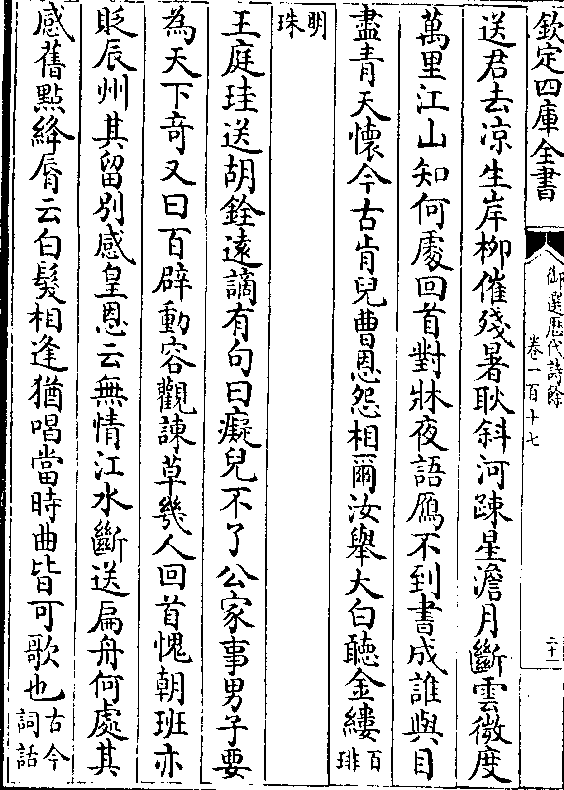 欽定四庫全書
御選歷代詩餘
卷一百十七
二十一
送君去凉生岸栁催殘暑耿斜河踈星澹月斷雲微度
萬里江山知何處回首對牀夜語鴈不到書成誰與目
盡青天懷今古肯兒曹恩怨相爾汝舉大白聽金縷百琲
明珠
王庭珪送胡銓遠謫有句曰癡兒不了公家事男子要
為天下竒又曰百辟動容觀諫草幾人回首愧朝班亦
貶辰州其留别感皇恩云無情江水斷送扁舟何處其
感舊點絳脣云白髮相逢猶唱當時曲皆可歌也古今詞話